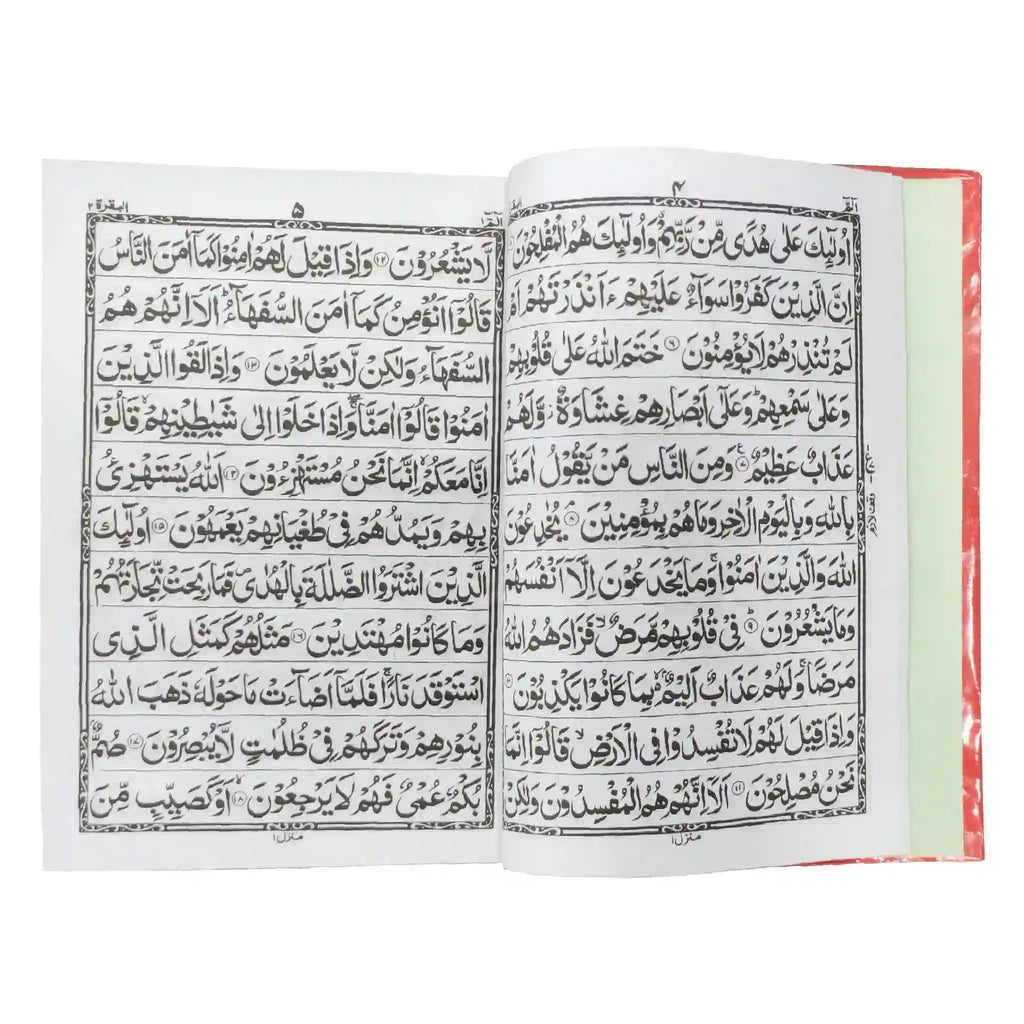 الٓمّٓ
۴
اُولٰٓئِكَ عَلٰى هُدًى مِّنْ رَّبِّهِمْ ۙ وَاُولٰٓئِكَ هُمُ الْمُفْلِحُوْنَ
اِنَّ الَّذِيْنَ كَفَرُوْا سَوَآءٌ عَلَيْهِمْ ءَاَنْذَرْتَهُمْ اَمْ
لَمْ تُنْذِرْهُمْ لَا يُؤْمِنُوْنَ ۶ خَتَمَ اللّٰهُ عَلٰى قُلُوْبِهِمْ
وَعَلٰى سَمْعِهِمْ ؕ وَعَلٰٓى اَبْصَارِهِمْ غِشَاوَةٌ ؗ وَّلَهُمْ
عَذَابٌ عَظِيْمٌ ۷ وَمِنَ النَّاسِ مَنْ يَّقُوْلُ اٰمَنَّا
بِاللّٰهِ وَبِالْيَوْمِ الْاٰخِرِ وَمَا هُمْ بِمُؤْمِنِيْنَ ۸ يُخٰدِعُوْنَ
اللّٰهَ وَالَّذِيْنَ اٰمَنُوْا ۚ وَمَا يَخْدَعُوْنَ اِلَّاۤ اَنْفُسَهُمْ
وَمَا يَشْعُرُوْنَ ۹ فِيْ قُلُوْبِهِمْ مَّرَضٌ ۙ فَزَادَهُمُ اللّٰهُ
مَرَضًا ۚ وَلَهُمْ عَذَابٌ اَلِيْمٌ ۢ ۙ بِمَا كَانُوْا يَكْذِبُوْنَ ۱۰
وَاِذَا قِيْلَ لَهُمْ لَا تُفْسِدُوْا فِى الْاَرْضِ ۙ قَالُوْۤا اِنَّمَا
نَحْنُ مُصْلِحُوْنَ ۱۱ اَلَاۤ اِنَّهُمْ هُمُ الْمُفْسِدُوْنَ وَلٰكِنْ
منزل ۱
وقف لازم
البقرة ۲
۵
الٓمّٓ ۱
لَّا يَشْعُرُوْنَ ۱۲ وَاِذَا قِيْلَ لَهُمْ اٰمِنُوْا كَمَاۤ اٰمَنَ النَّاسُ
قَالُوْۤا اَنُؤْمِنُ كَمَاۤ اٰمَنَ السُّفَهَآءُ ؕ اَلَاۤ اِنَّهُمْ هُمُ
السُّفَهَآءُ وَلٰكِنْ لَّا يَعْلَمُوْنَ ۱۳ وَاِذَا لَقُوا الَّذِيْنَ
اٰمَنُوْا قَالُوْۤا اٰمَنَّا ۖۚ وَاِذَا خَلَوْا اِلٰى شَيٰطِيْنِهِمْ ۙ قَالُوْۤا
اِنَّا مَعَكُمْ ۙ اِنَّمَا نَحْنُ مُسْتَهْزِءُوْنَ ۱۴ اَللّٰهُ يَسْتَهْزِئُ
بِهِمْ وَيَمُدُّهُمْ فِيْ طُغْيَانِهِمْ يَعْمَهُوْنَ ۱۵ اُولٰٓئِكَ
الَّذِيْنَ اشْتَرَوُا الضَّلٰلَةَ بِالْهُدٰى ۪ فَمَا رَبِحَتْ تِّجَارَتُهُمْ
وَمَا كَانُوْا مُهْتَدِيْنَ ۱۶ مَثَلُهُمْ كَمَثَلِ الَّذِى
اسْتَوْقَدَ نَارًا ۚ فَلَمَّاۤ اَضَآءَتْ مَا حَوْلَهٗ ذَهَبَ اللّٰهُ
بِنُوْرِهِمْ وَتَرَكَهُمْ فِيْ ظُلُمٰتٍ لَّا يُبْصِرُوْنَ ۱۷ صُمٌّۢ
بُكْمٌ عُمْيٌ فَهُمْ لَا يَرْجِعُوْنَ ۙ ۱۸ اَوْ كَصَيِّبٍ مِّنَ
منزل ۱